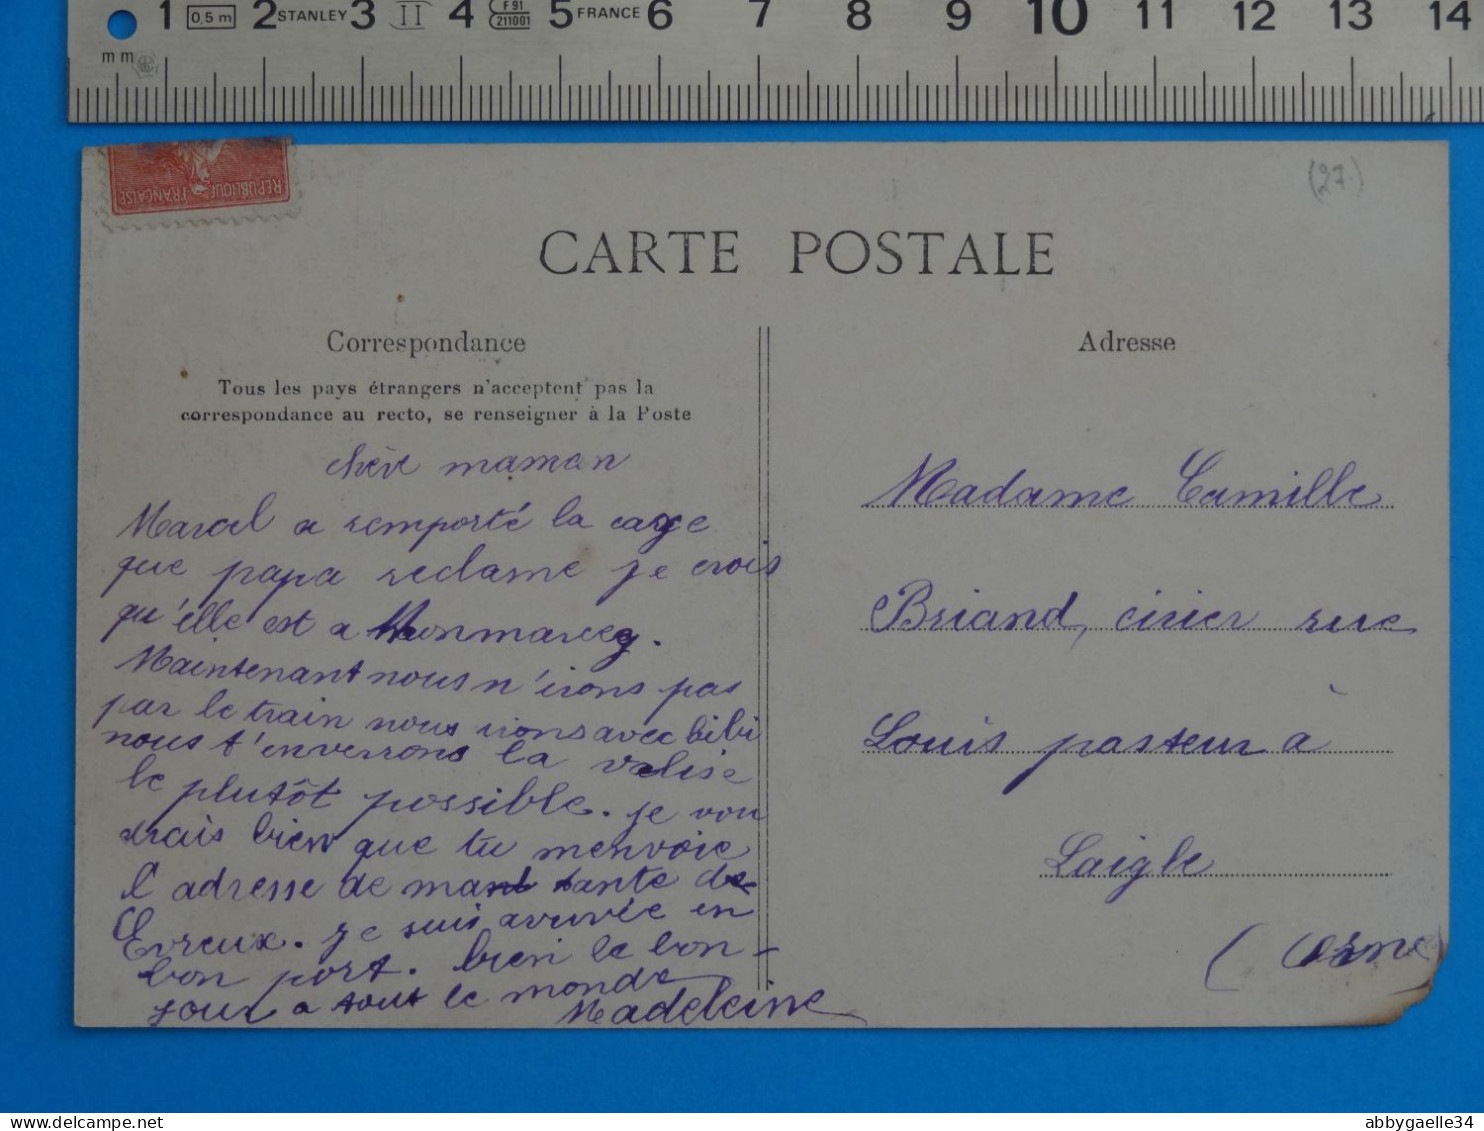 1 0,5 m 2 STANLEY 3 II 4 F 91 211001 5 FRANCE 6 7 8 9 10 11 12 13 14
mm
REPUBLIQUE FRANÇAISE
(27.)
CARTE POSTALE
Correspondance
Tous les pays étrangers n'acceptent pas la
correspondance au recto, se renseigner à la Poste
chère maman
Marcel a remporté la cage
que papa reclame je crois
qu'elle est a
Maintenant nous n'irons pas
par le train nous irons avec bibi
nous t'enverrons la valise
le plutôt possible. je vou
drais bien que tu menvoie
l'adresse de ma tante de
Evreux. je suis arrivée en
bon port. bien le bon-
jour a tout le monde
Madeleine
Adresse
Madame Camille
Briand, cirier rue
Louis pasteur à
Laigle
(Orne
delcampe.net
abbygaelle34